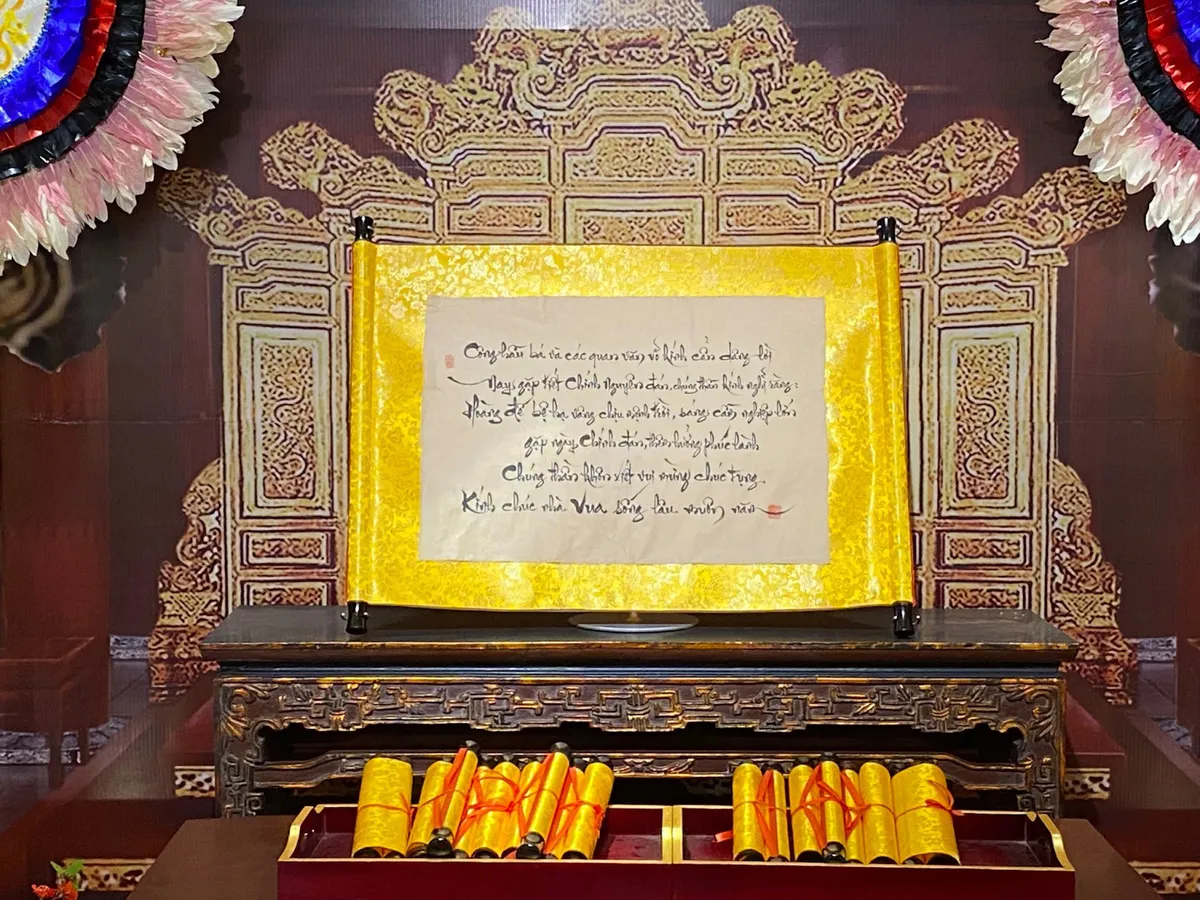 Công hầu bá và các quan văn võ kính cẩn dâng lời
Nay, gặp tiết Chính Nguyên đán, chúng thần kính nghĩ rằng:
Hoàng đế bệ hạ vâng chịu mệnh trời, sáng cầm nghiệp lớn
gặp ngày Chính đán, thêm hưởng phúc lành
Chúng thần khôn xiết vui mừng chúc tụng.
Kính chúc nhà Vua sống lâu muôn năm